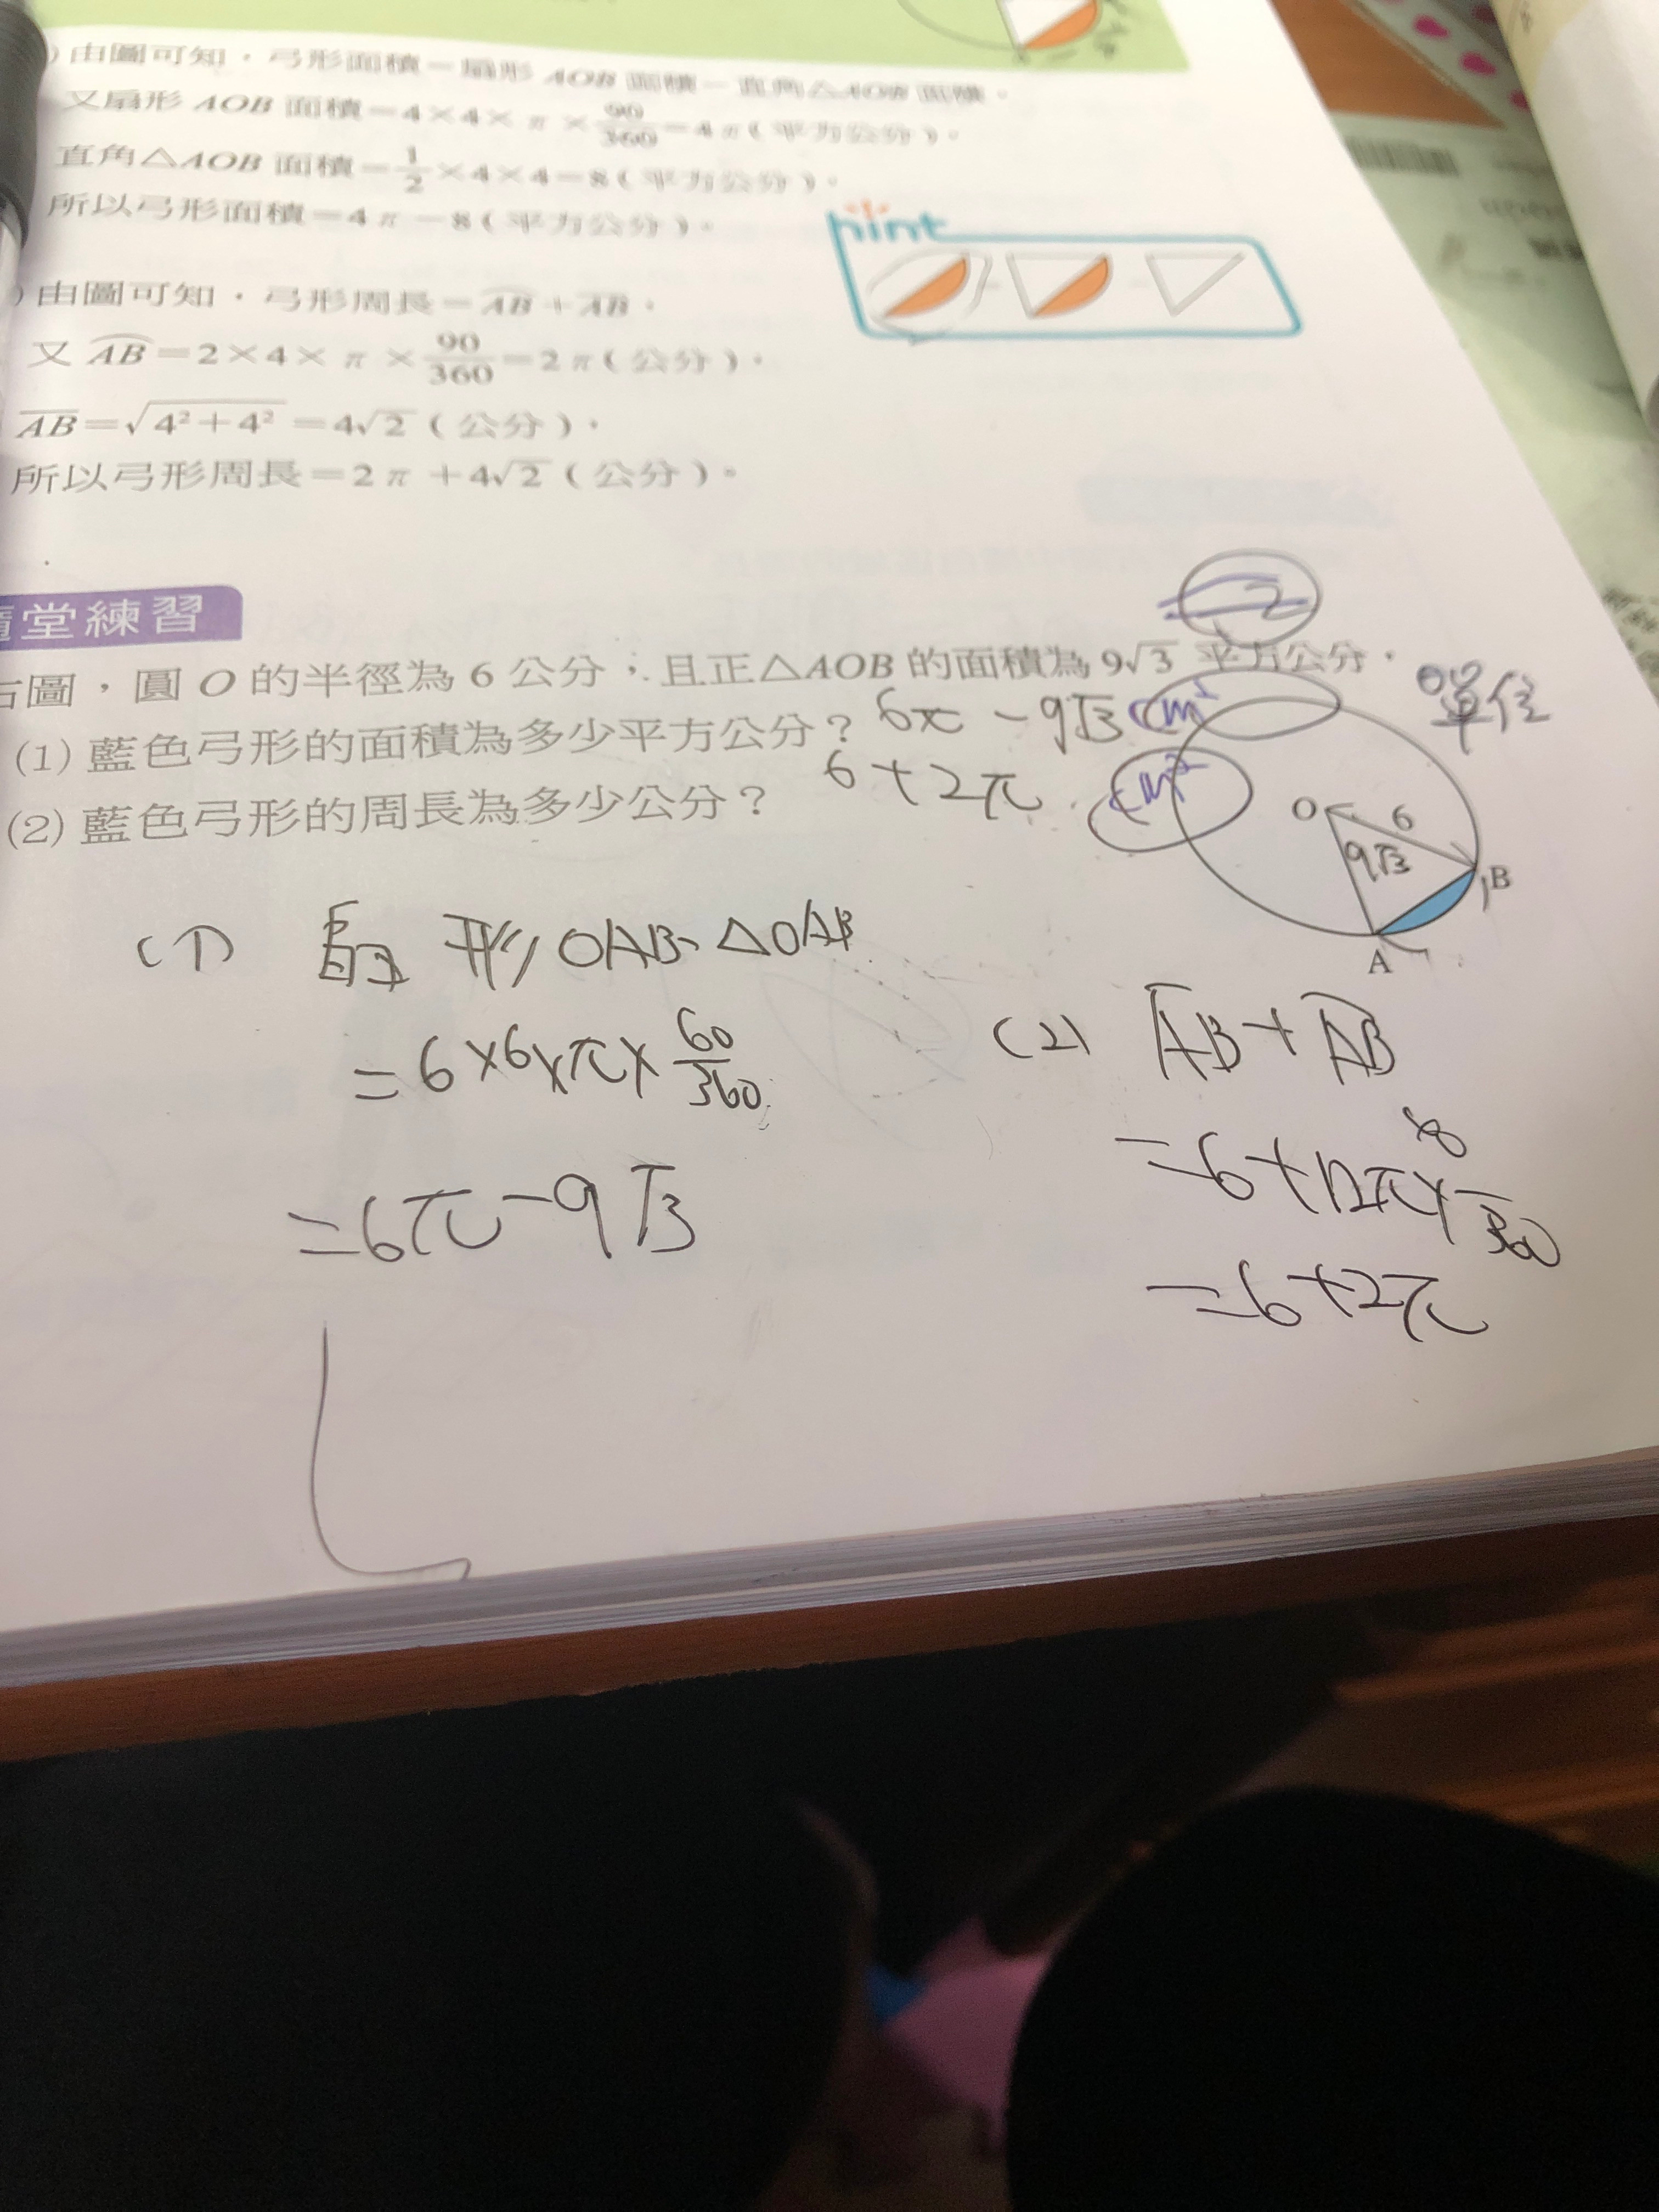 )由圖可知，弓形面積=扇形 AOB 面積-直角△AOB 面積。
又扇形 AOB 面積=4×4×π×90/360=4π(平方公分)。
直角△AOB 面積=1/2×4×4=8(平方公分)。
所以弓形面積=4π-8(平方公分)。
hint
)由圖可知，弓形周長=AB+AB。
又 AB=2×4×π×90/360=2π(公分)。
AB=√4²+4²=4√2(公分)。
所以弓形周長=2π+4√2(公分)。
隨堂練習
右圖，圓 O 的半徑為 6 公分，且正△AOB 的面積為 9√3 平方公分。
(1) 藍色弓形的面積為多少平方公分？ 6π-9√3 cm²
單位
(2) 藍色弓形的周長為多少公分？ 6+2π cm²
O 6
9√3
B
A
(1) 扇形OAB-△OAB
=6×6×π×60/360
=6π-9√3
(2) AB+AB
=6+2π